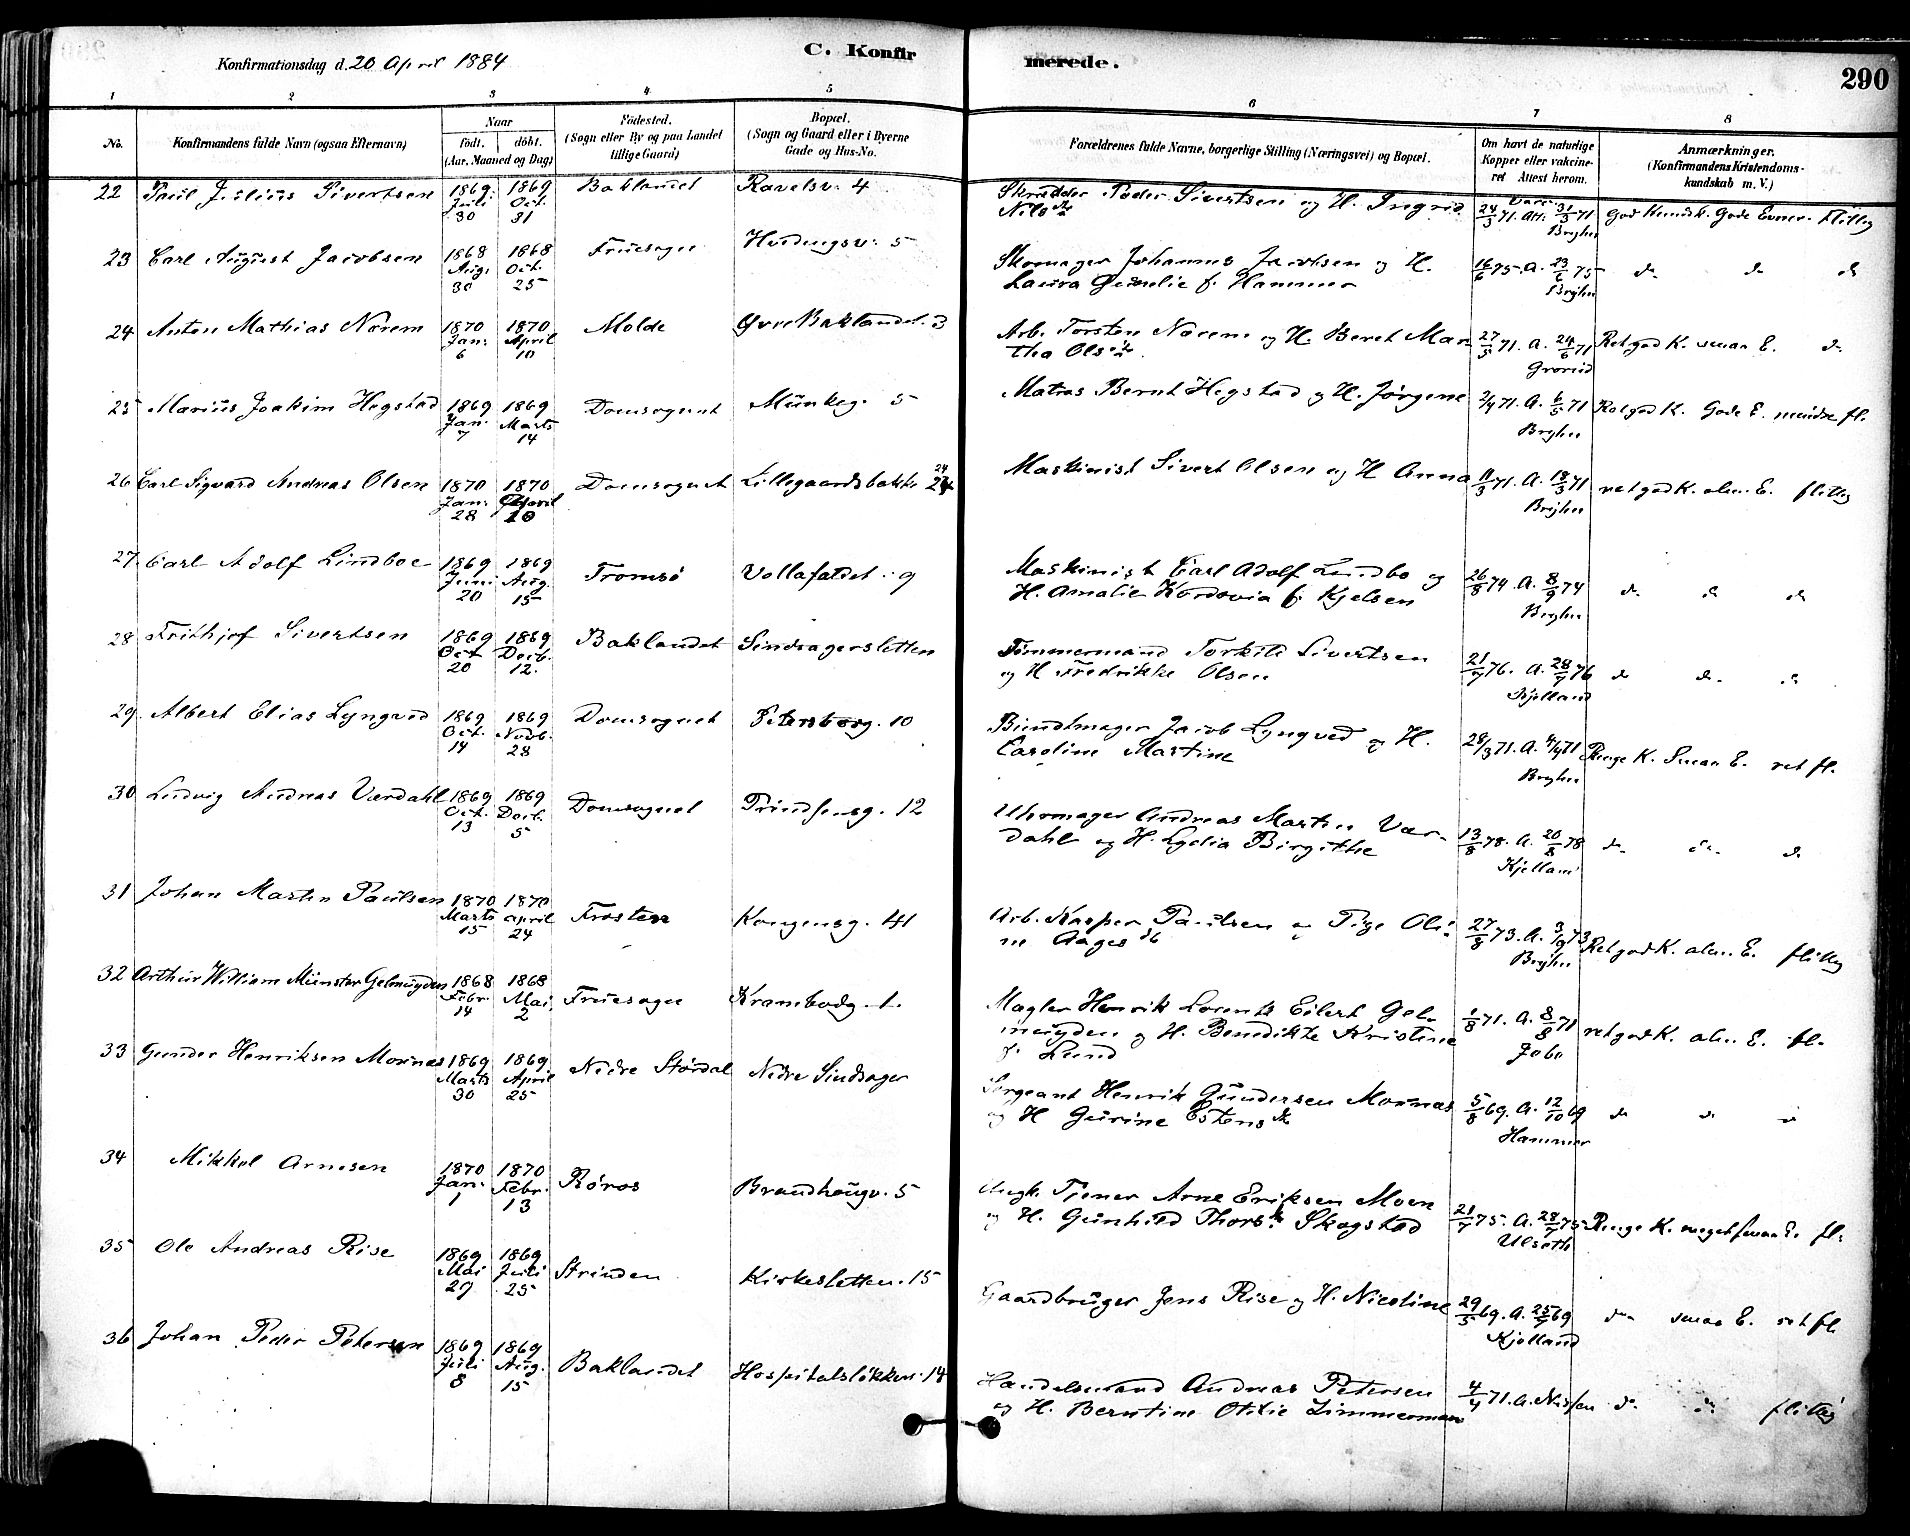 Konfirmationsdag d. 20 April 1884
C. Konfirmerede.
290
1 2 3 4 5 6 7 8
No. Konfirmandens fulde Navn (ogsaa Efternavn) Naar født. døbt. (Aar, Maaned og Dag) Fødested. (Sogn eller By og paa Landet tillige Gaard) Bopæl. (Sogn og Gaard eller i Byerne Gade og Hus-No. Forældrenes fulde Navne, borgerlige Stilling (Næringsvei) og Bopæl. Om havt de naturlige Kopper eller vakcineret Attest herom. Anmærkninger. (Konfirmandens Kristendomskundskab m. V.)
22 Paul Julius Sivertsen 1869 Juli 30 1869 Oct. 31 Baklandet Ravelsv. 4 Skrædder Peder Sivertsen og H. Ingrid Nilsdr 24/3 71. Att. 31/3 71 Bryhn God Kundsk. Gode Evner. flittig
23 Carl August Jacobsen 1868 Aug. 30 1868 Oct. 25 Fruesogn Hvedingsv. 5 Skomager Johannes Jacobsen og H. Laura Gurilie f. Hammer 16/6 75. A. 23/6 75 Bryhn do do do
24 Anton Mathias Nærem 1870 Jan. 6 1870 April 10 Molde Øvre Baklandet. 3 Arb. Torsten Nærem og H. Beret Martha Olsdr. 27/5 71. A. 24/6 71 Grøruid Ret god K. smaa E. do
25 Marius Joakim Hegstad 1869 Jan. 7 1869 Marts 14 Domsognet Munkeg. 5 Matros Bernt Hegstad og H. Jørgene 2/4 71. A. 6/5 71 Bryhn Ret god K. Gode E. mindre fl.
26 Carl Sigvard Andreas Olsen 1870 Jan. 28 1870 April 10 Domsognet Lillegaardsbakke 24 Maskinist Sivert Olsen og H Anna 11/3 71. A. 18/3 71 Bryhn ret god K. alm. E. flittig
27. Carl Adolf Lindboe 1869 Juni 20 1869 Aug. 15 Tromsø Vollafaldet. 9 Maskinist Carl Adolf Lindbo og H. Amalie Kordovia f. Kjelsen 26/8 74 A. 8/9 74 Bryhn do do do
28 Frithjof Sivertsen 1869 Oct 20 1869 Decb. 12. Baklandet Sindsagersletten Tømmermand Torkild Sivertsen og H Fredrikke Olsen 21/7 76. A. 28/7 76 Kjelland do do do
29 Albert Elias Lyngved 1869 Oct. 14 1869 Novb. 28 Domsognet Petersborg. 10 Bundtmager Jacob Lyngved og H. Caroline Martine 28/3 71. A. 4/4 71 Bryhn Ringe K. Smaa E. ret fl.
30 Ludvig Andreas Værdahl 1869 Oct. 13 1869 Decb. 5 Domsognet Prindsensg. 12 Uhrmager Andreas Martin Værdahl og H. Lydia Birgithe 13/8 78. A. 20/8 78 Kjelland do do do
31 Johan Martin Paulsen 1870 Marts 15 1870 April 24 Frosten Kongensg. 41 Arb. Kasper Paulsen og Pige Oline Aagesdr 27/8 73. A. 3/9 73 Bryhn Ret god K. alm. E. flittig
32 Arthur William Münster Gelmuyden 1868 Febr. 14 1868 Mai 2 Fruesogn Krambodg. 1. Mægler Henrik Lorents Eilert Gelmuyden og H. Bendikte Kristine f. Lund 1/8 71. A. 8/8 71 ret god K. alm. E. fl.
33 Gunder Henriksen Mornæs 1869 Marts 30 1869 April 25 Nedre Størdal Nedre Sindsager Sergeant Henrik Gundersen Mornæs og H Gurine Estensdr 5/8 69. A. 12/10 69 Hammer do do do
34 Mikkel Arnesen 1870 Jan. 1 1870 Febr. 13 Røros Brandhaugv. 5 Tjener Arne Eriksen Moen og H. Gunhild Thorsdr Skogstad 21/7 75. A. 28/7 75 Ulseth Ringe K. meget smaa E. fl.
35 Ole Andreas Rise 1869 Mai 29 1869 Juli 25 Strinden Kirkesletten. 15 Gaardbruger Jens Rise og H. Nicoline 29/5 69. A. 25/7 69 Kjelland do smaa E. ret fl.
36 Johan Peder Petersen 1869 Juli 8 1869 Aug. 15 Baklandet Hospitalsløkken. 14 Handelsmand Andreas Petersen og H. Berntine Otilie Zimmermann 4/4 71. A. Nissen do do flittig